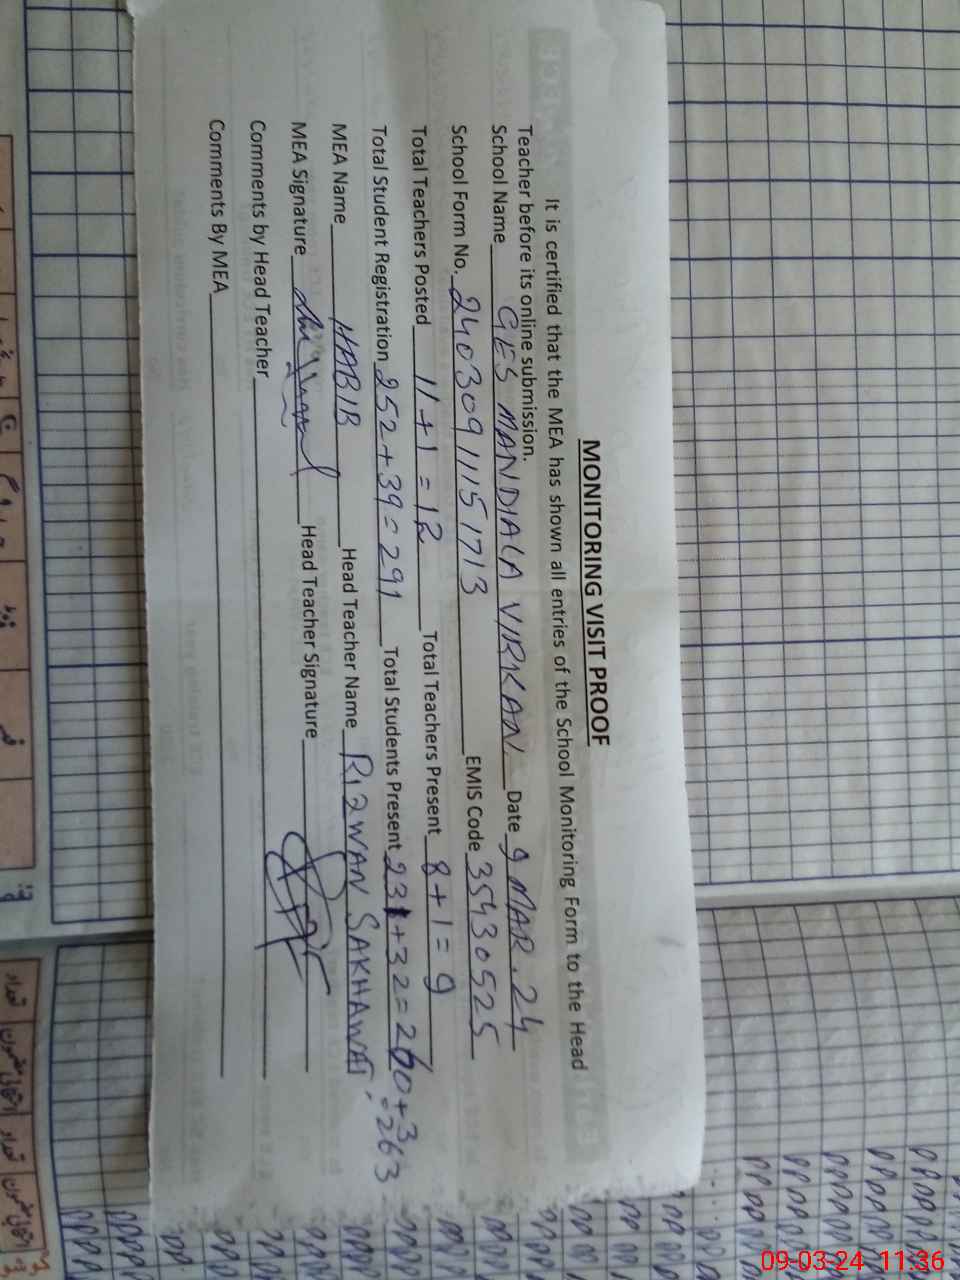 MONITORING VISIT PROOF
It is certified that the MEA has shown all entries of the School Monitoring Form to the Head
Teacher before its online submission.
School Name GES MANDIALA VIRKAN Date 9 MAR. 24
School Form No. 24030911151713 EMIS Code 35430525
Total Teachers Posted 11+1=12 Total Teachers Present 8+1=9
Total Student Registration 252+39=291 Total Students Present 231+32=260+3=263
MEA Name HABIB Head Teacher Name RIZWAN SAKHAWAT
MEA Signature Head Teacher Signature
Comments by Head Teacher
Comments By MEA
09-03-24 11:36